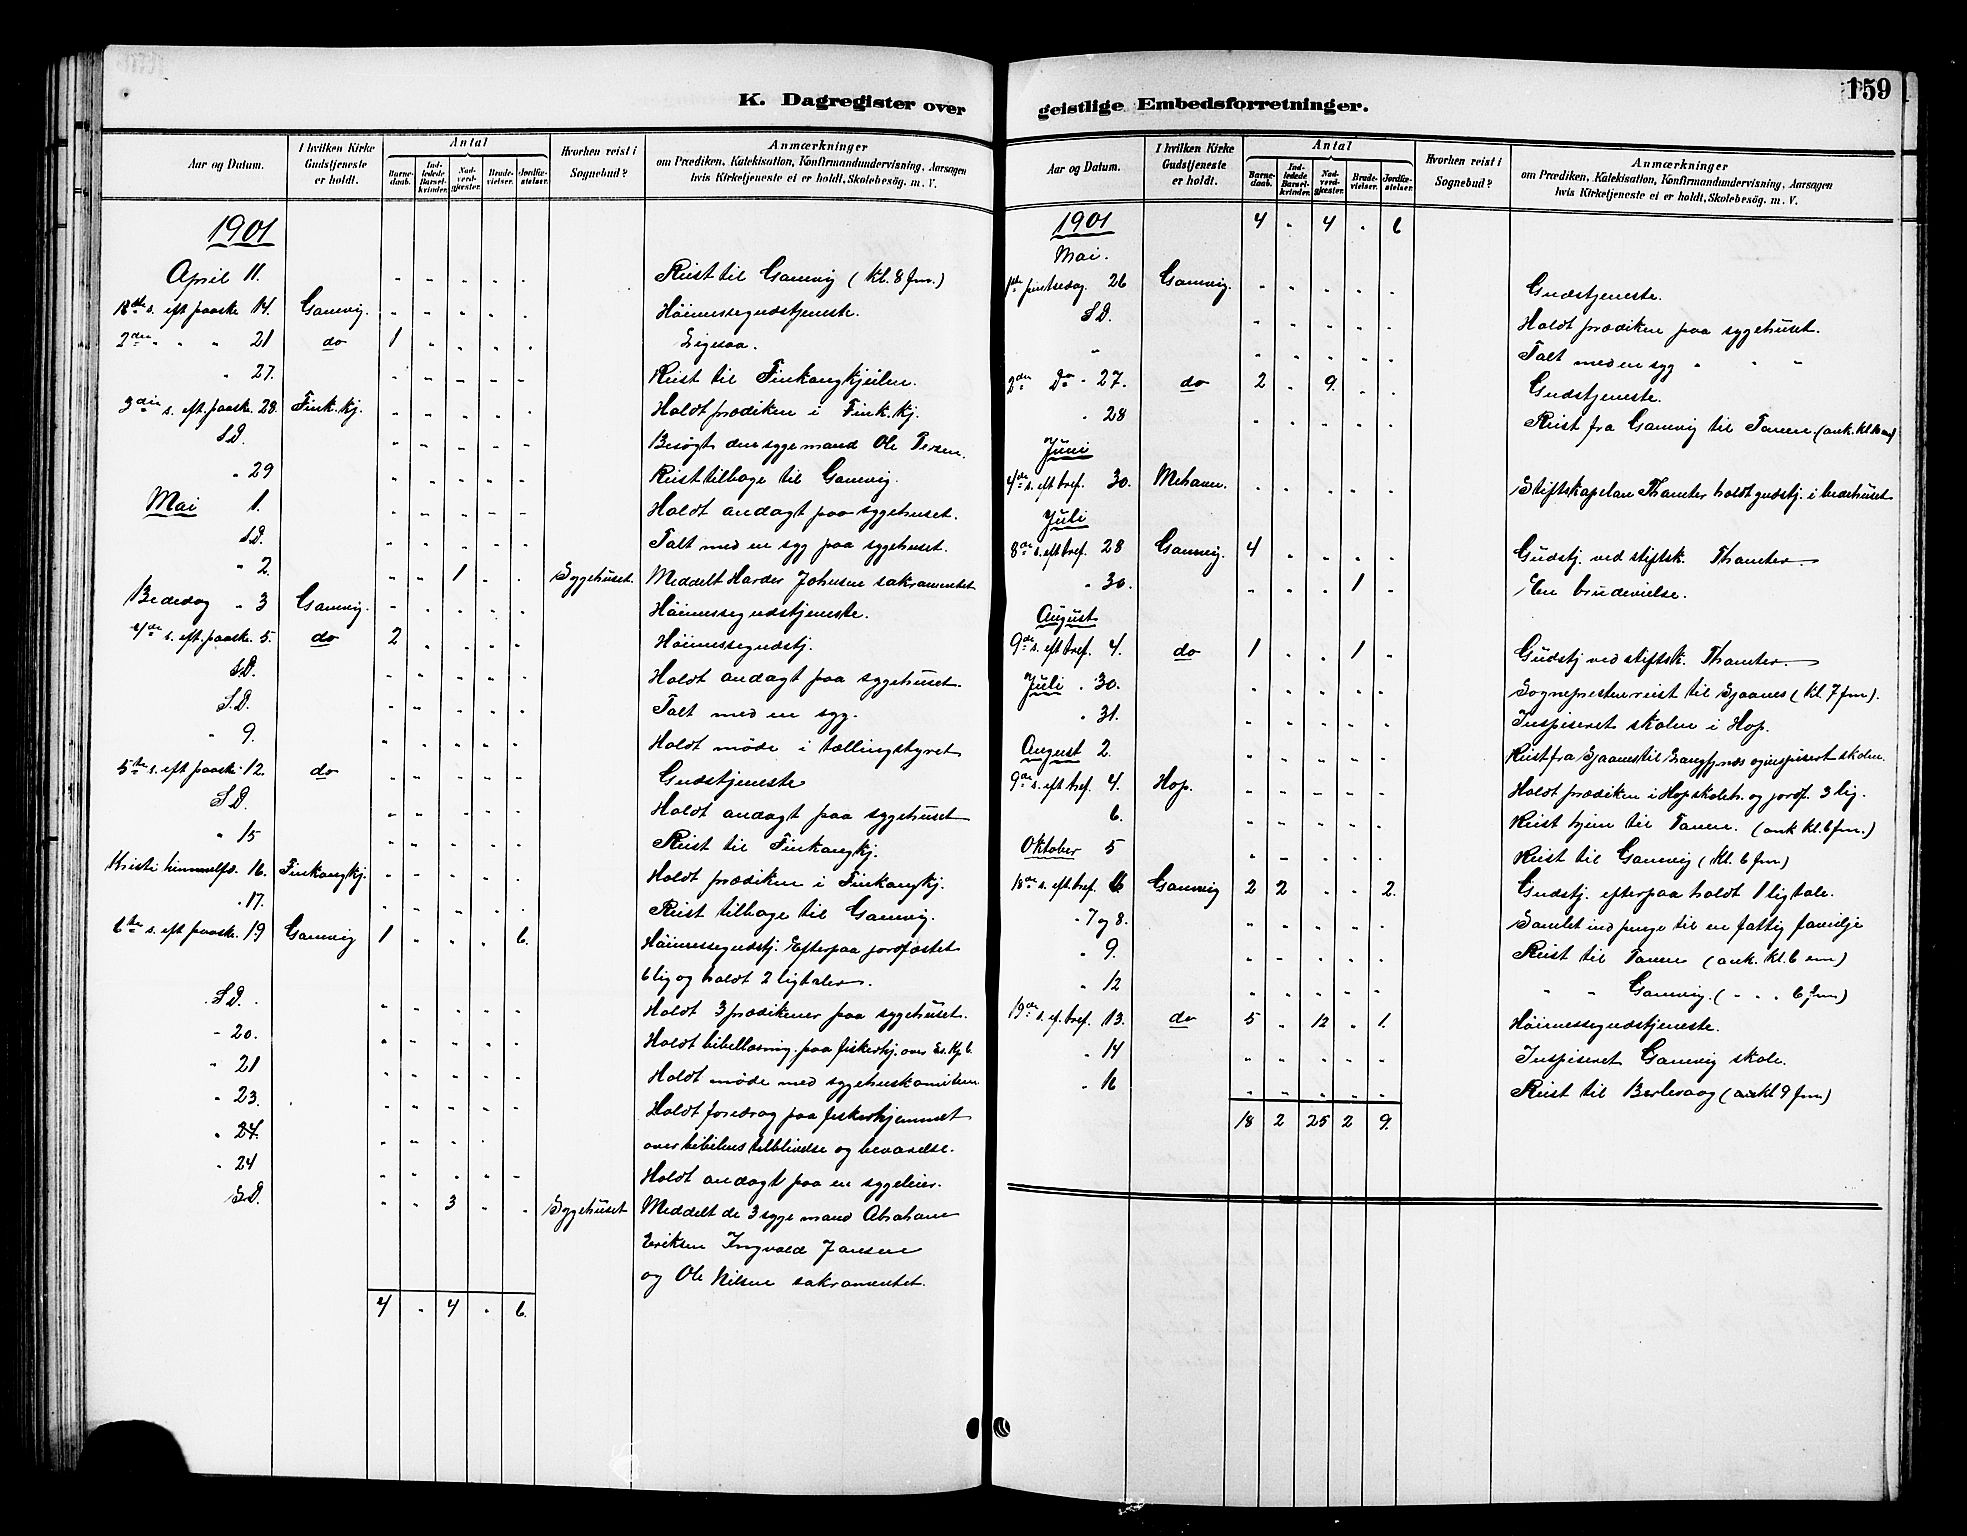 K. Dagregister over
Aar og Datum. I hvilken Kirke Gudstjeneste er holdt. Antal Barnedaab. Indledede Barselkvinder. Nadverdgjester. Brudevielser. Jordfæstelser. Hvorhen reist i Sognebud? Anmærkninger
om Prædiken, Katekisation, Konfirmandundervisning, Aarsagen
hvis Kirketjeneste ei er holdt, Skolebesög. m. V.
1901
April 11. " " " " " Reist til Gamvig (kl. 8 fm.)
1ste s. eft paaske 14. Gamvig. " " " " " Höimessegudstjeneste.
2den " " " 21 do 1 " " " " Ligesaa.
" 27. " " " " " Reist til Finkongkjeilen.
3die s. eft. paaske. 28. Fink.kj. " " " " " Holdt prædiken i Fink.kj.
S.D. " " " " " Besøgt den syge mand Ole Persen.
" 29 " " " " " Reist tilbage til Gamvig.
Mai 1. " " " " " Holdt andagt paa sygehuset.
S.D. " " " " " Talt med en syg paa sygehuset.
" 2. " " 1 " " Sygehuset. Meddelt Harder Johnsen sakramentet
Bededag " 3 Gamvig. " " " " " Höimessegudstjeneste.
4de s. eft. paaske 5. do 2 " " " " Höimessegudstj.
S.D. " " " " " Holdt andagt paa sygehuset.
S.D. " " " " " Talt med en syg.
" 9. " " " " " Holdt möde i tællingstyret
5te s. eft paaske 12. do " " " " " Gudstjeneste
S.D. " " " " " Holdt andagt paa sygehuset
" 15 " " " " " Reist til Finkongkj.
Kristi himmelfd. 16. Finkongkj. " " " " " Holdt prædiken i Finkongkj.
" 17. " " " " " Reist tilbage til Gamvig.
6te s. eft paask. 19. Gamvig 1 " " " 6. Höimessegudstj. Efterpaa jordfæstet
6 lig og holdt 2 ligtaler.
S.D. " " " " " Holdt 3 prædikener paa sygehuset.
" 20. " " " " " Holdt bibellæsning. paa fiskerhj. over Es. Kp 6.
" 21 " " " " " Holdt möde med sygehuskomiteen
" 23. " " " " " Holdt foredrag paa fiskerhjemmet
" 24. " " " " " over bibelens tilblivelse og bevarelse.
" 24 " " " " " Holdt andagt paa en sygeleier.
S.D. " " 3 " " Sygehuset Meddelt de 3 syge mænd Abraham
Eriksen Ingvald Jansen
og Ole Nilsen sakramentet.
4 " 4 " 6.
159
geistlige Embedsforretninger.
Aar og Datum. I hvilken Kirke Gudstjeneste er holdt. Antal Barnedaab. Indledede Barselkvinder. Nadverdgjester. Brudevielser. Jordfæstelser. Hvorhen reist i Sognebud? Anmærkninger
om Prædiken, Katekisation, Konfirmandundervisning, Aarsagen
hvis Kirketjeneste ei er holdt, Skolebesög. m. V.
1901 4 " 4 " 6
Mai.
1ste pintsedag. 26 Gamvig. " " " " " Gudstjeneste.
S.D. " " " " " Holdt prædiken paa sygehuset.
" " " " " " Talt med en syg " " "
2den Do " 27. do 2 " 9. " " Gudstjeneste.
" 28 " " " " " Reist fra Gamvig til Tanen (ank. kl. 10 em)
Juni
4de s. eft tref. 30. Mehavn. " " " " " Stiftskapelan Thomter holdt gudstj. i bedehuset
Juli
8de s. eft tref. 28 Gamvig. 4 " " " " Gudstj ved stiftsk. Thomter
" 30. " " " 1 " En brudevielse.
August
9de s. eft tref. 4. do 1 " " 1 " Gudstj ved stiftsk. Thomter
Juli " 30. " " " " " Sognepresten reist til Sjaanes (kl 7 fm).
" 31. " " " " " Inspiseret skolen i Hop.
August 2. " " " " " Reist fra Sjaanes til Langfjnæs og inspisert skolen.
9de s. eft tref. 4. Hop. " " " " " Holdt prædiken i Hop skoleh. og jordf. 3 lig.
6. " " " " " Reist hjem til Tanen. (ank kl. 6 fm.)
Oktober 5 " " " " " Reist til Gamvig (kl. 6 fm)
18de s. eft tref. 6 Gamvig 2 2 " " 2. Gudstj. efterpaa holdt 1 ligtale.
" 7 og 8. " " " " " Samlet ind penge til en fattig familje
" 9. " " " " " Reist til Tanen (ank. kl. 6 em)
" 12 " " " " " " " Gamvig. ( " " " 6 fm)
19de s. ef. tref. 13. do 5 " 12 " 1. Höimessegudstjeneste.
" 14 " " " " " Inspiseret Gamvig skole.
" 16 " " " " " Reist til Berlevaag (ank kl 9 fm)
18 2 25 2 9.